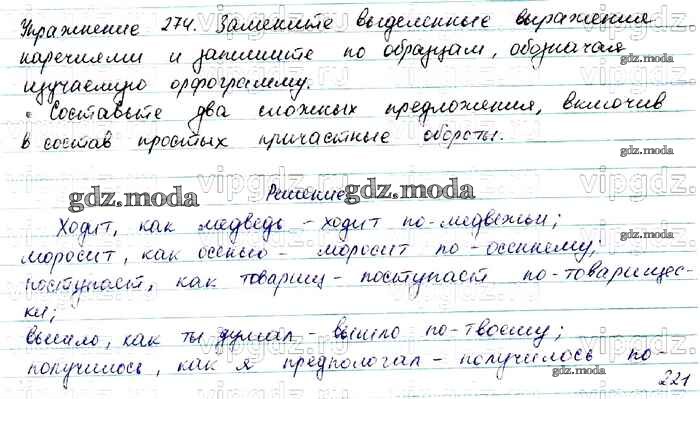 Упражнение 274. Замените выделенные выражения
наречиями и запишите по образцам, обозначая
изучаемую орфограмму.
• Составьте два сложных предложения, включив
в состав простых причастные обороты.
Решение
Ходит, как медведь - ходит по-медвежьи;
моросит, как осенью - моросит по-осеннему;
поступает, как товарищ - поступает по-товарищес-
ки;
вышло, как ты думал - вышло по-твоему;
получилось, как я предпологал - получилось по-
221
gdz.moda
gdz.moda
gdz.moda
gdz.moda
gdz.moda
gdz.moda
gdz.moda
gdz.moda
vipgdz.ru